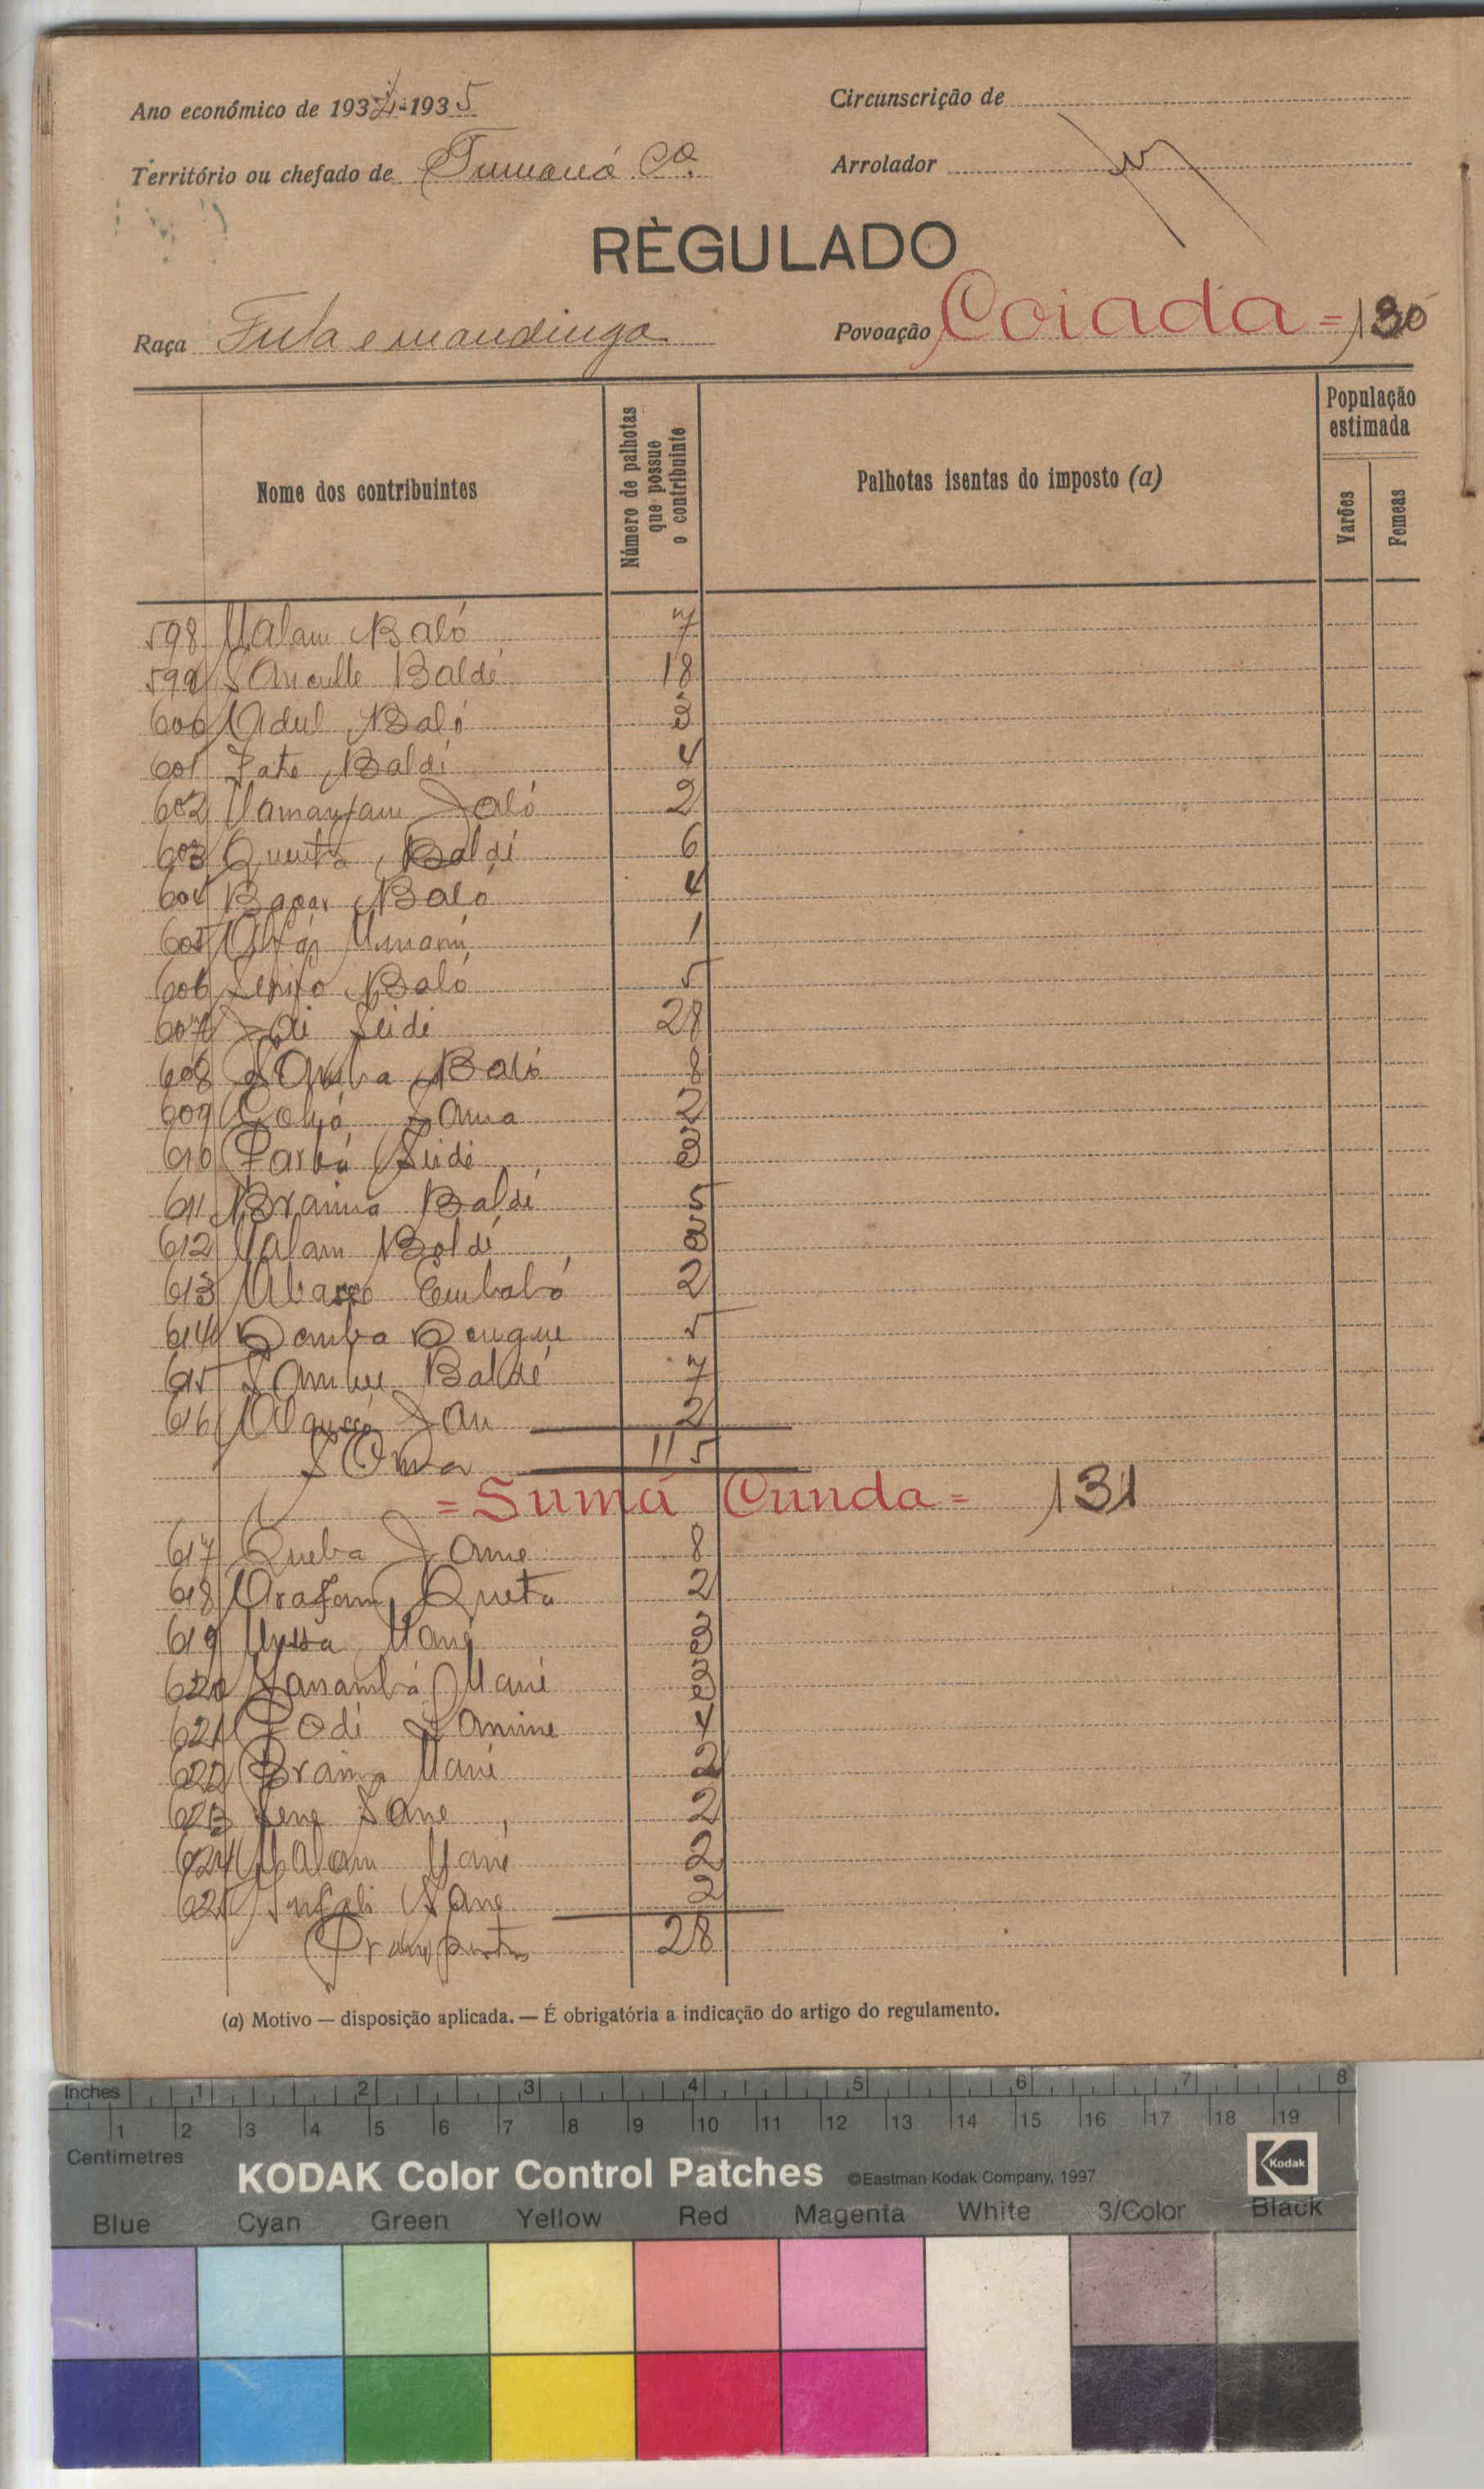 Ano económico de 1934-1935
Circunscrição de
Território ou chefado de Tumaná Cª.
Arrolador
RÈGULADO
Raça Fula e mandinga
Povoação Coiada = 130
Nome dos contribuintes
Número de palhotas que possue o contribuinte
Palhotas isentas do imposto (a)
População estimada
Varões
Femeas
598 Malam Baló 7
599 Baldé 18
600 Adul Baló 3
601 Fato Baldé 4
602 Jaló 2
603 Quinta Baldé 6
604 Bacar Baló 4
605 1
606 Serifo Baló 5
607 Seidi 28
608 Samba Baló 8
609 Sama 2
610 Seidi 3
611 Braima Baldé 5
612 Malam Baldé 3
613 Embaló 2
614 Demba 5
615 Baldé 7
616 2
Soma 115
= Sumá Cunda = 131
617 Queba Same 8
618 Arafam Queta 2
619 Mussa Mané 3
620 Mané 3
621 Fodi 4
622 Braima Mané 2
623 Sane 2
624 Malam Mané 2
625 Sane 2
Transporte 28
(a) Motivo — disposição aplicada. — É obrigatória a indicação do artigo do regulamento.
Inches 1 2 3 4 5 6 7 8
1 2 3 4 5 6 7 8 9 10 11 12 13 14 15 16 17 18 19
Centimetres
KODAK Color Control Patches ©Eastman Kodak Company, 1997 Kodak
Blue Cyan Green Yellow Red Magenta White 3/Color Black